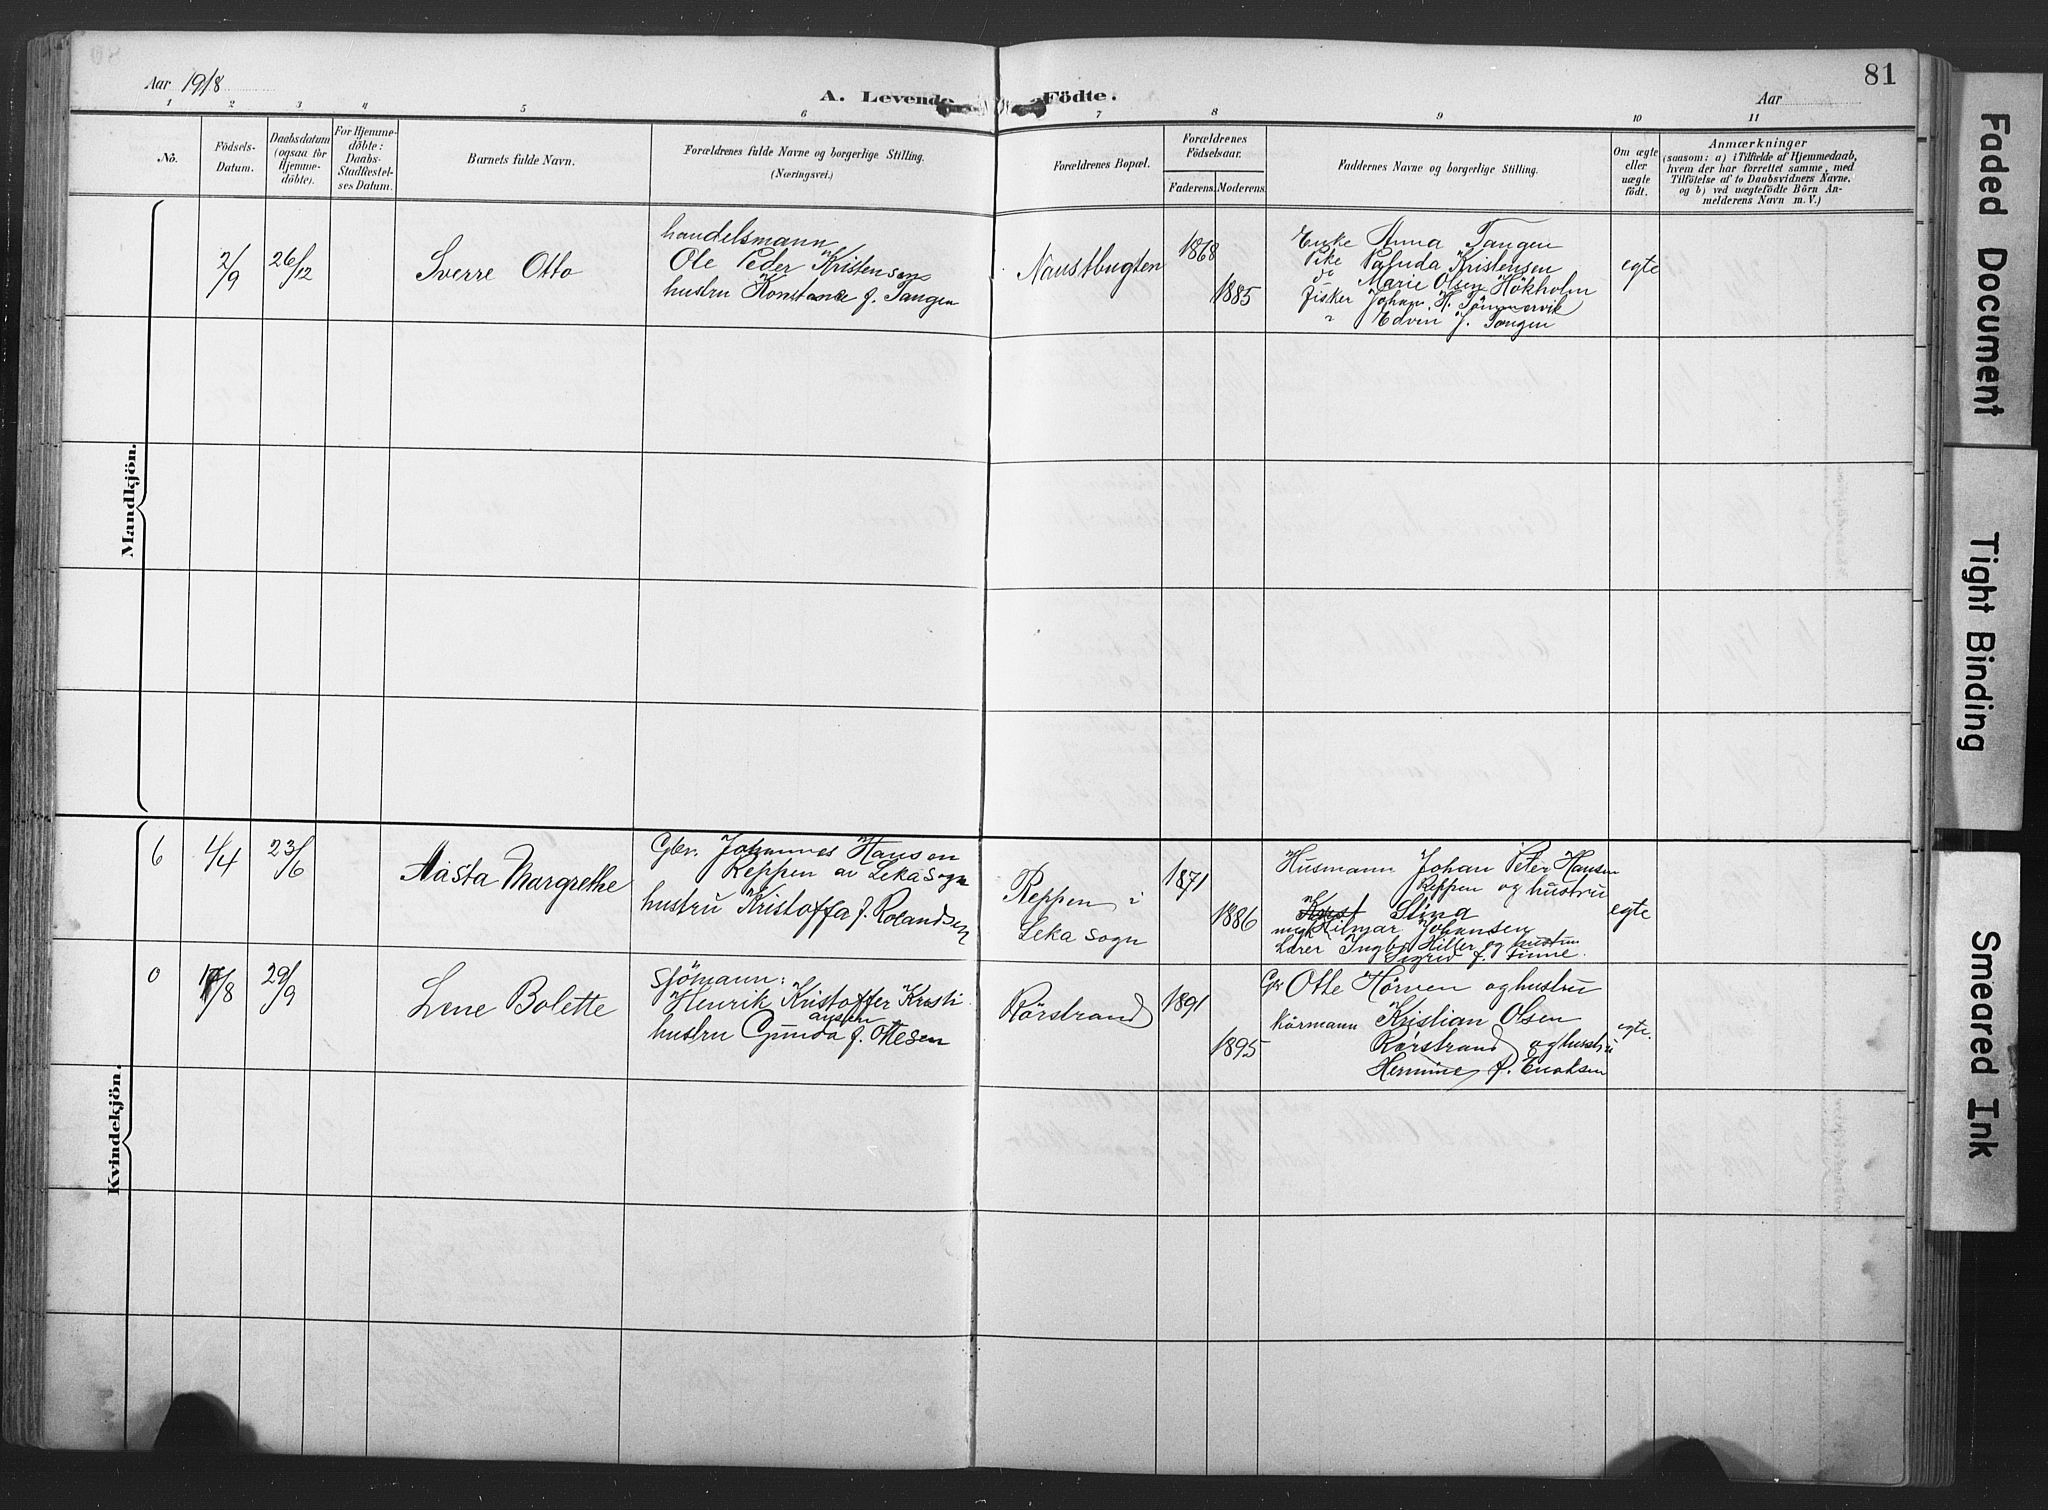 81
Aar 1918
A. Levende Födte.
Aar
1 2 3 4 5 6 7 8 9 10 11
No.
Födsels-
Datum.
Daabsdatum
(ogsaa for
Hjemme-
döbte).
For Hjemme-
döbte:
Daabs-
Stadfestel-
ses Datum.
Barnets fulde Navn.
Forældrenes fulde Navne og borgerlige Stilling.
(Næringsvei.)
Forældrenes Bopæl.
Forældrenes
Födselsaar.
Faderens. Moderens.
Faddernes Navne og borgerlige Stilling.
Om ægte
eller
uægte
födt.
Anmærkninger
(saasom: a) i Tilfælde af Hjemmedaab,
hvem der har forrettet samme, med
Tilföielse af to Daabsvidners Navne,
og b) ved uægtefödte Börn An-
melderens Navn m. V.)
Mandkjön.
2/9 26/12 Sverre Otto
handelsmann
Ole Peder Kristensen
hustru Konstance f. Tangen
Naustbugten
1868
1885
Enke Anna Tangen
Pike Kristensen
do Marie Olsen Hökholm
Fisker Johan H. Tömmervik
" Edvin J. Tangen
egte
Kvindekjön.
6 4/4 23/6 Aasta Margrethe
Gbr. Johannes Hansen
Reppen av Leka sogn
hustru Kristoffa f. Rolandsen
Reppen i
Leka sogn
1871
1886
Husmann Johan Peter Hansen
Reppen og hustru
Stina
Hilmar Johansen
Lærer Ingbr. Hiller og hustru
Sigrid f. Finne.
egte
0 17/8 29/9 Lene Bolette
Sjömann:
Henrik Kristoffer Kristi
ansen
hustru Gunda f. Ottesen
Rörstrand
1891
1895
Gbr Otte Hörven og hustru
Kårmann Kristian Olsen
Rörstrand og hustru
Hermine f. Enoksen
egte.
Faded Document
Tight Binding
Smeared Ink